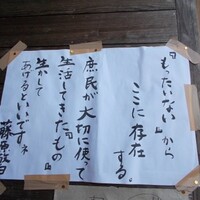 「もったいない」から
ここに存在
する。
庶民が大切に使って
生活してきたもの
生かして
あげるといいですネ